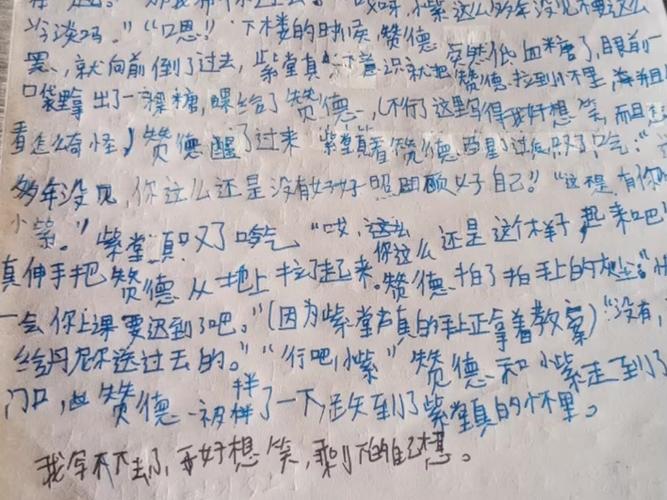 哎呀,小紫这么多年没见不要这么
冷淡吗。”“嗯!”下楼的时候 赞德 突然低血糖了,眼前一
黑,就向前倒了过去,紫堂真下意识就把 赞德 拉到怀里,并且
口袋里拿出了一课糖,喂给了赞德,(不行了这里写得我好想笑,而且
看怎么奇怪)赞德醒了过来 紫堂真看着赞德 醒了过后叹了口气:“
多年没见,你这么还是没有好好照顾好自己!”“这不是有你
小紫。”紫堂真又叹了口气 “哎,这么你这么还是这个样子 起来吧
真伸手把 赞德 从地上拉了起来。赞德 拍了拍手上的灰尘。
一会你上课要迟到了吧。”(因为紫堂真的手上正拿着教案)“没有,
给丹尼尔送过去的。”“行吧小紫” 赞德 和小紫走到了
门口, 赞德 被拌了一下,跌到了紫堂真的怀里。
我写不下去了,好想笑,剩下的自己想。